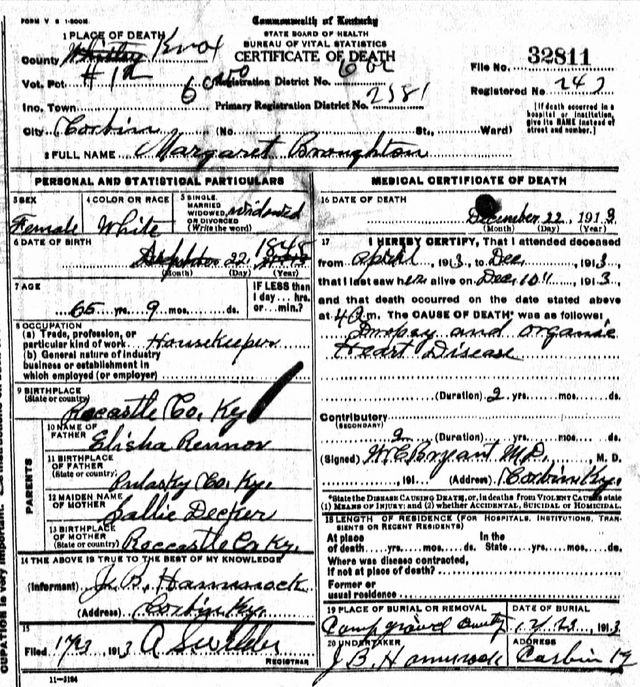 FORM V S 1-500M.
Commonwealth of Kentucky
STATE BOARD OF HEALTH
BUREAU OF VITAL STATISTICS
CERTIFICATE OF DEATH
1 PLACE OF DEATH
County Whitley Knox
Vot. Pct #12
Inc. Town
City Corbin (No. St., Ward)
Registration District No. 602
Primary Registration District No. 2381
File No. 32811
Registered No. 247
[If death occurred in a
hospital or institution,
give its NAME instead of
street and number.]
2 FULL NAME Margaret Broughton
PERSONAL AND STATISTICAL PARTICULARS
3 SEX
Female
4 COLOR OR RACE
White
5 SINGLE,
MARRIED
WIDOWED,
OR DIVORCED
(Write the word)
Widowed
6 DATE OF BIRTH
22, 1848
(Month) (Day) (Year)
7 AGE
65 yrs. 9 mos. ds.
IF LESS than
1 day... hrs.
or ... min.?
8 OCCUPATION
(a) Trade, profession, or
particular kind of work Housekeeper
(b) General nature of industry
business or establishment in
which employed (or employer)
9 BIRTHPLACE
(State or country)
Rocastle Co. Ky
PARENTS
10 NAME OF
FATHER
Elisha Rennor
11 BIRTHPLACE
OF FATHER
(State or country)
Pulasky Co. Ky.
12 MAIDEN NAME
OF MOTHER
Sallie Decker
13 BIRTHPLACE
OF MOTHER
(State or country)
Roccastle Co Ky.
14 THE ABOVE IS TRUE TO THE BEST OF MY KNOWLEDGE
(Informant) J. B. Hammock
(Address) Corbin Ky.
15
Filed 1913 A
REGISTRAR
11-3184
MEDICAL CERTIFICATE OF DEATH
16 DATE OF DEATH
December 22, 1913
(Month) (Day) (Year)
17 I HEREBY CERTIFY, That I attended deceased
from April, 1913, to Dec, 1913,
that I last saw her alive on Dec 10", 1913,
and that death occurred on the date stated above
at 4 m. The CAUSE OF DEATH* was as follows:
Dropsy and organic
Heart Disease
(Duration) 2 yrs. mos. ds.
Contributory
(SECONDARY)
2 (Duration) yrs. mos. ds.
(Signed) W C Bryant M.D., M. D.
, 191 (Address) Corbin Ky.
*State the DISEASE CAUSING DEATH, or, in deaths from VIOLENT CAUSES state
(1) MEANS OF INJURY; and (2) whether ACCIDENTAL, SUICIDAL or HOMICIDAL.
18 LENGTH OF RESIDENCE (FOR HOSPITALS, INSTITUTIONS, TRAN-
SIENTS OR RECENT RESIDENTS)
At place
of death yrs. mos. ds.
In the
State yrs. mos. ds.
Where was disease contracted,
if not at place of death?
Former or
usual residence
19 PLACE OF BURIAL OR REMOVAL
Camp ground
DATE OF BURIAL
1913
20 UNDERTAKER
J B Hammock
ADDRESS
Corbin Ky